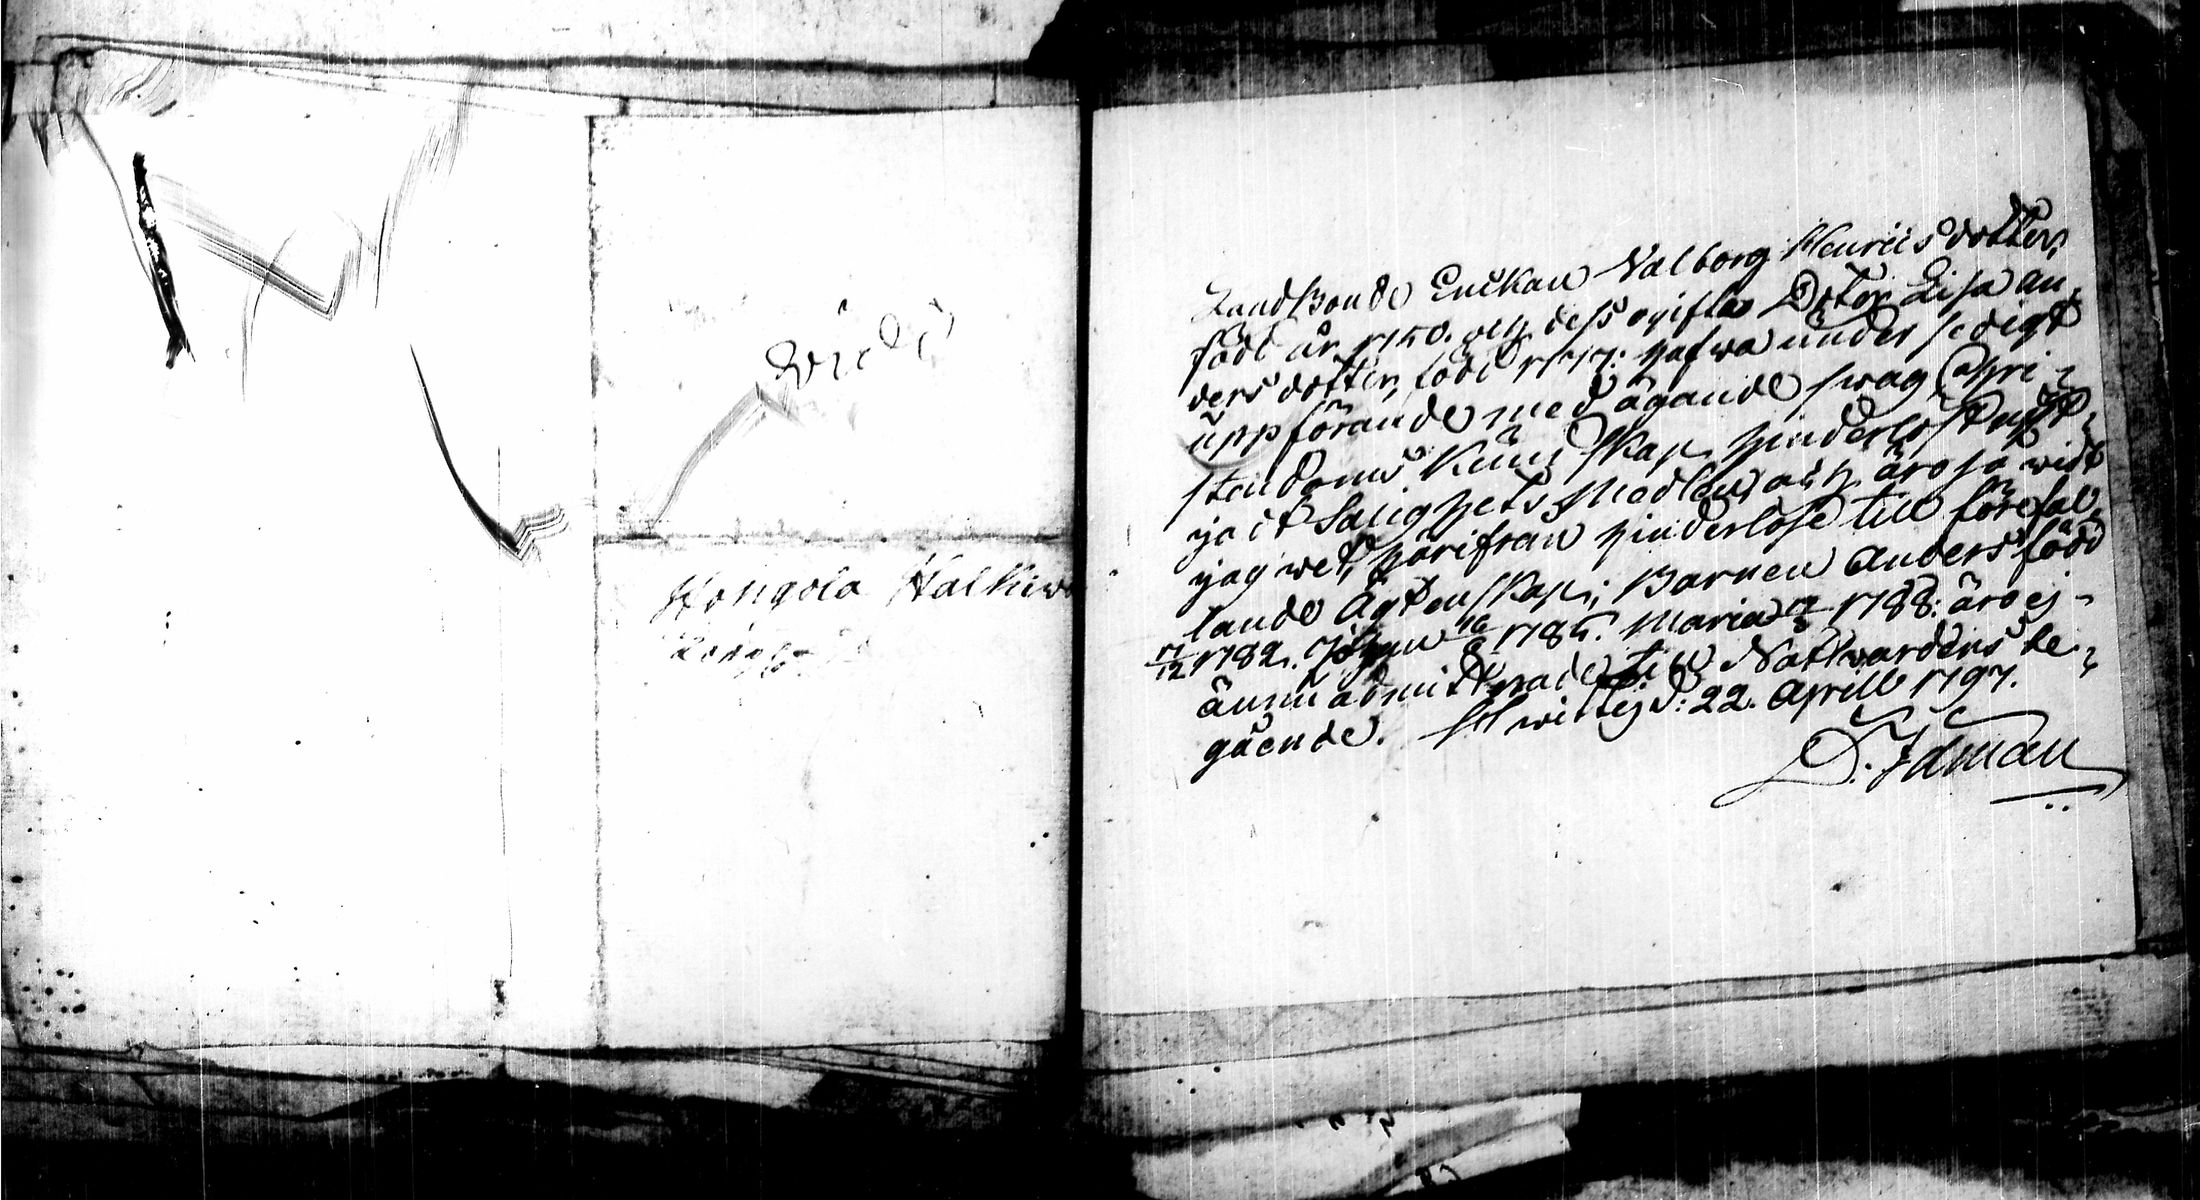 Hongola Halkiwa
Landbonde Enckan Valborg Henricsdotter,
född år 1750. och dess ogifta Dotter Lisa an-
ders dotter, född 1777: hafwa under sedigt
uppförande med ägande swag Chri-
stendoms Kunskap, hinderlöst nytt-
ja it Salighets Medlen, och äro så widt
jag wet, härifrån hinderlöse till förefal-
lande Ägtenskap; Barnen Anders född
17/12 1782. Johan 16/6 1785. Maria 1788: äro ej
ännu admitterade till Nattwardens be-
gående. Hwittis d: 22. Aprill 1797.
D. Idman